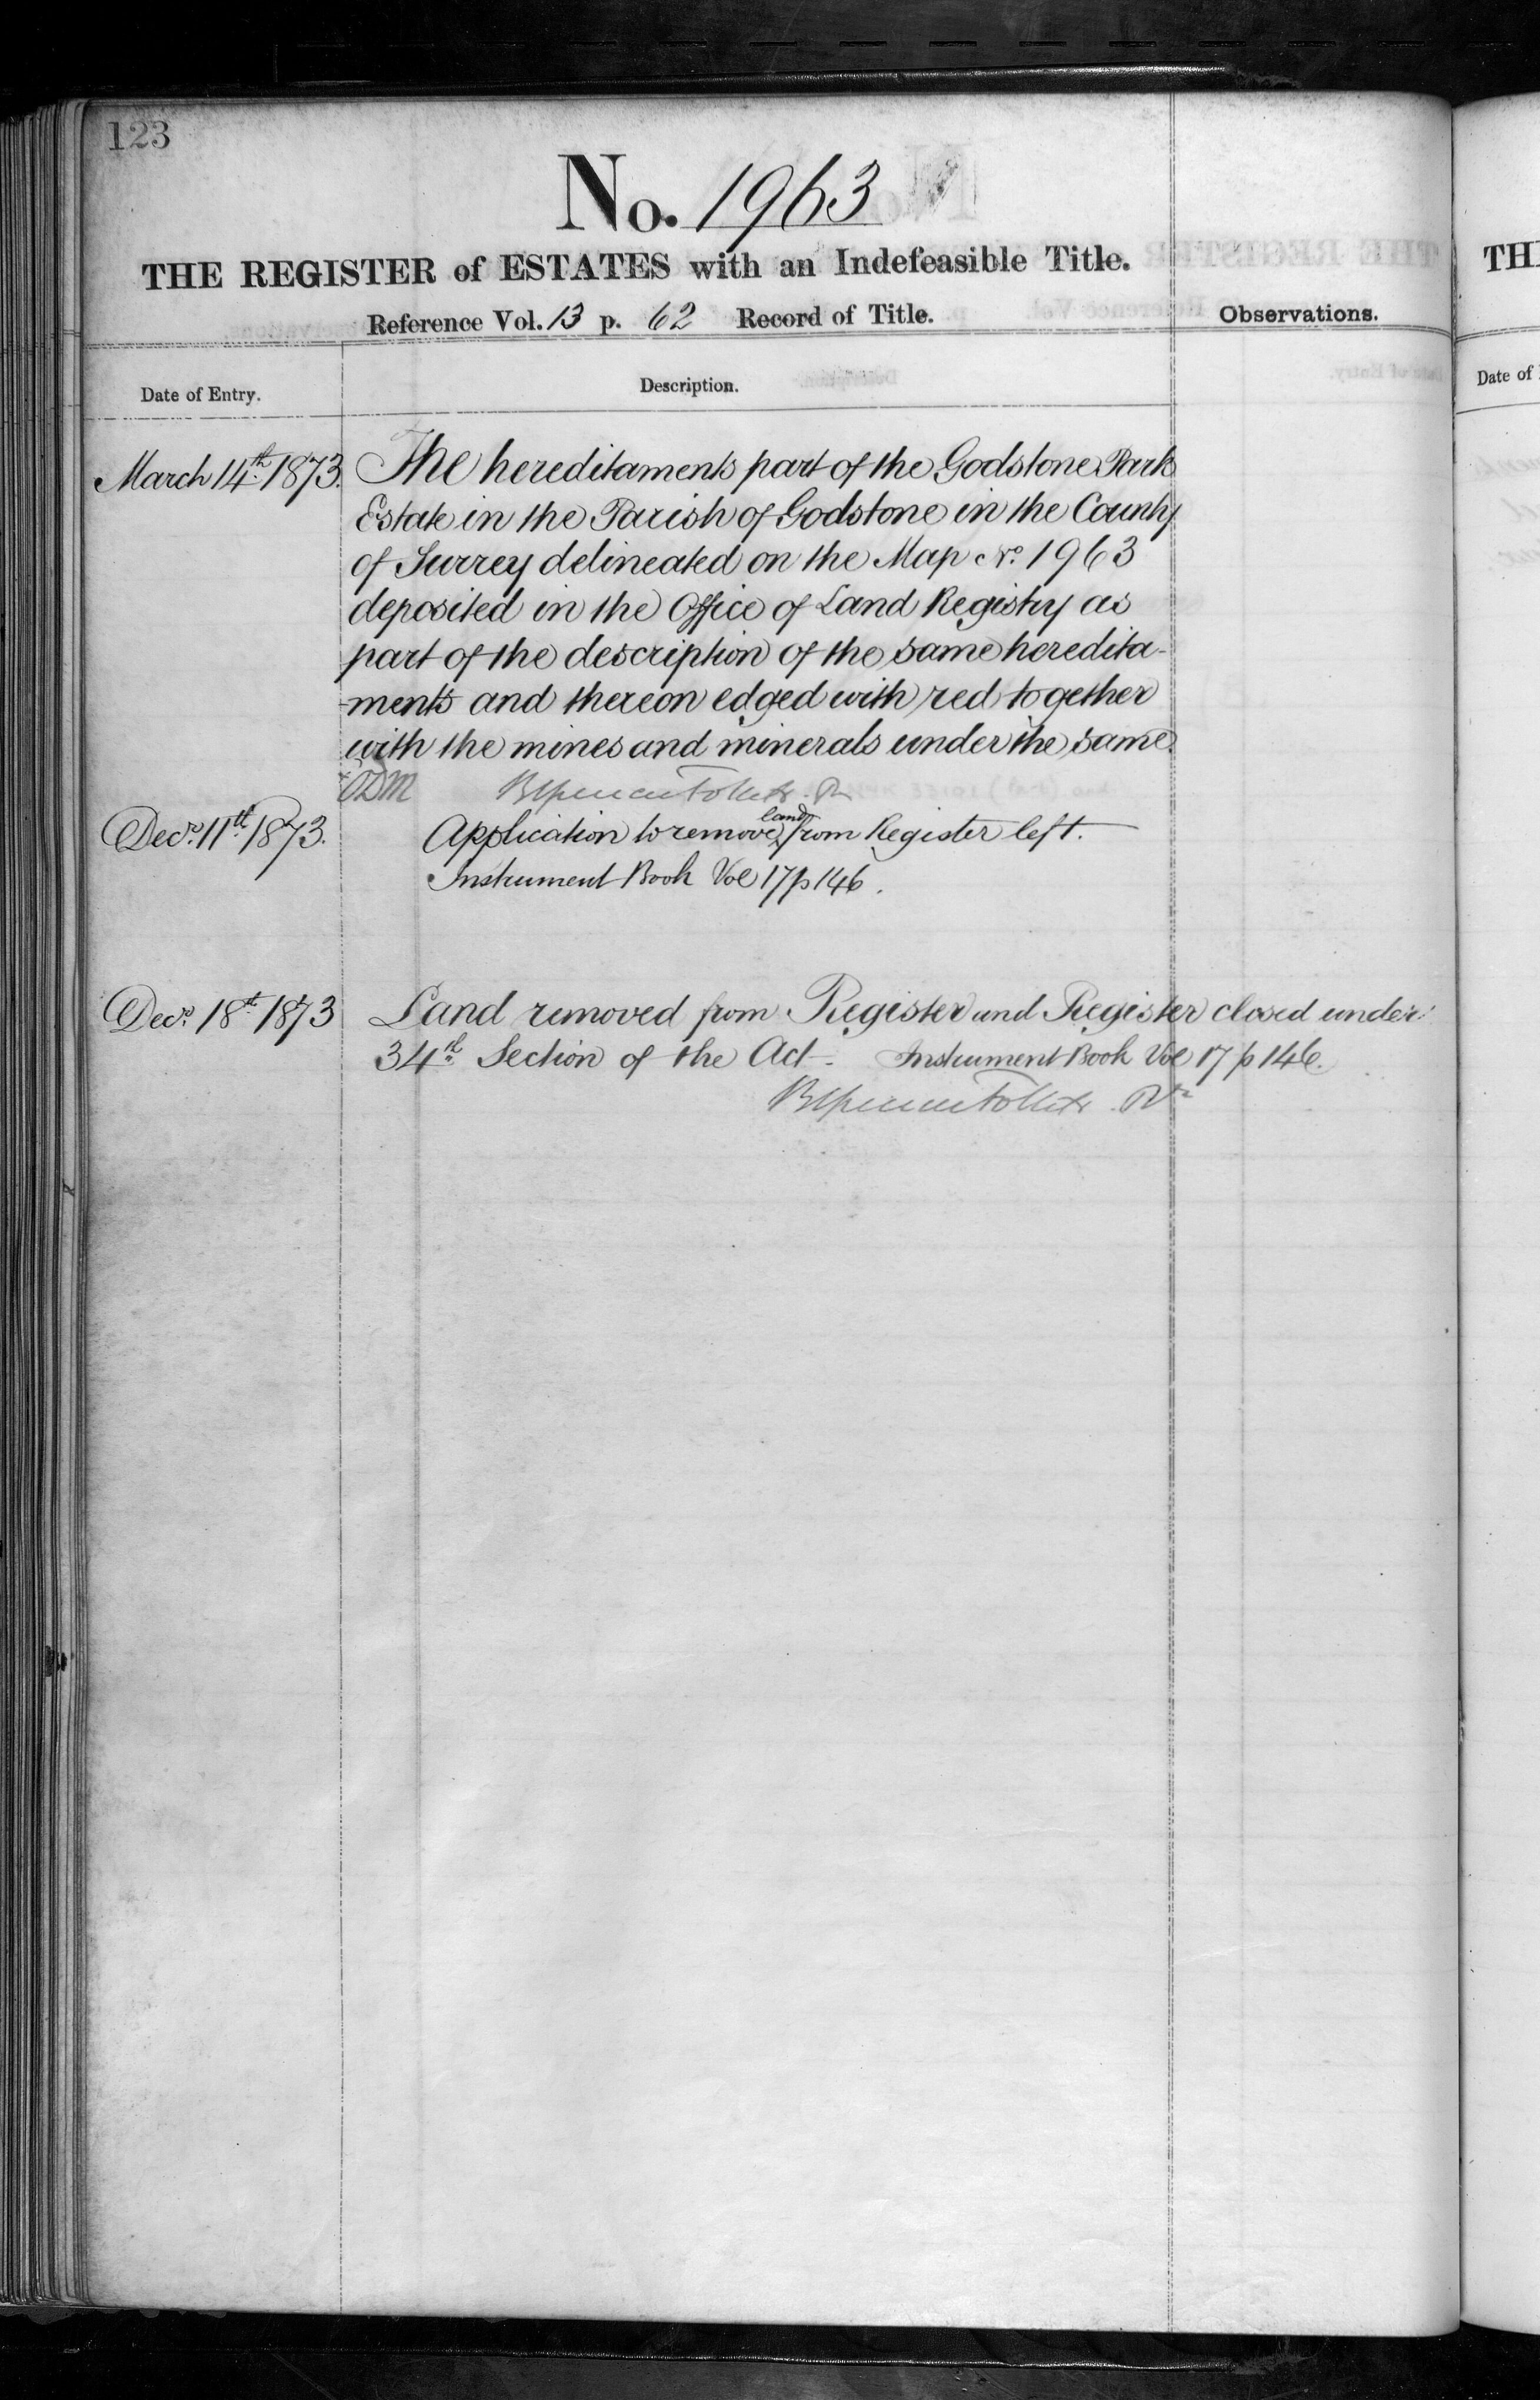 123
No. 1963
THE REGISTER of ESTATES with an Indefeasible Title.
Reference Vol. 13 p. 62 Record of Title.
Observations.
Date of Entry.
Description.
March 14th 1873. The hereditaments part of the Godstone Park
Estate in the Parish of Godstone in the County
of Surrey delineated on the Map No. 1963
deposited in the Office of Land Registry as
part of the description of the same heredita-
-ments and thereon edged with red together
with the mines and minerals under the same.
Decr. 11th 1873. Application to remove land from Register left.
Instrument Book Vol 17 p 146.
Decr. 18th 1873 Land removed from Register and Register closed under
34th Section of the Act. Instrument Book Vol 17 p 146.
TH
Date of